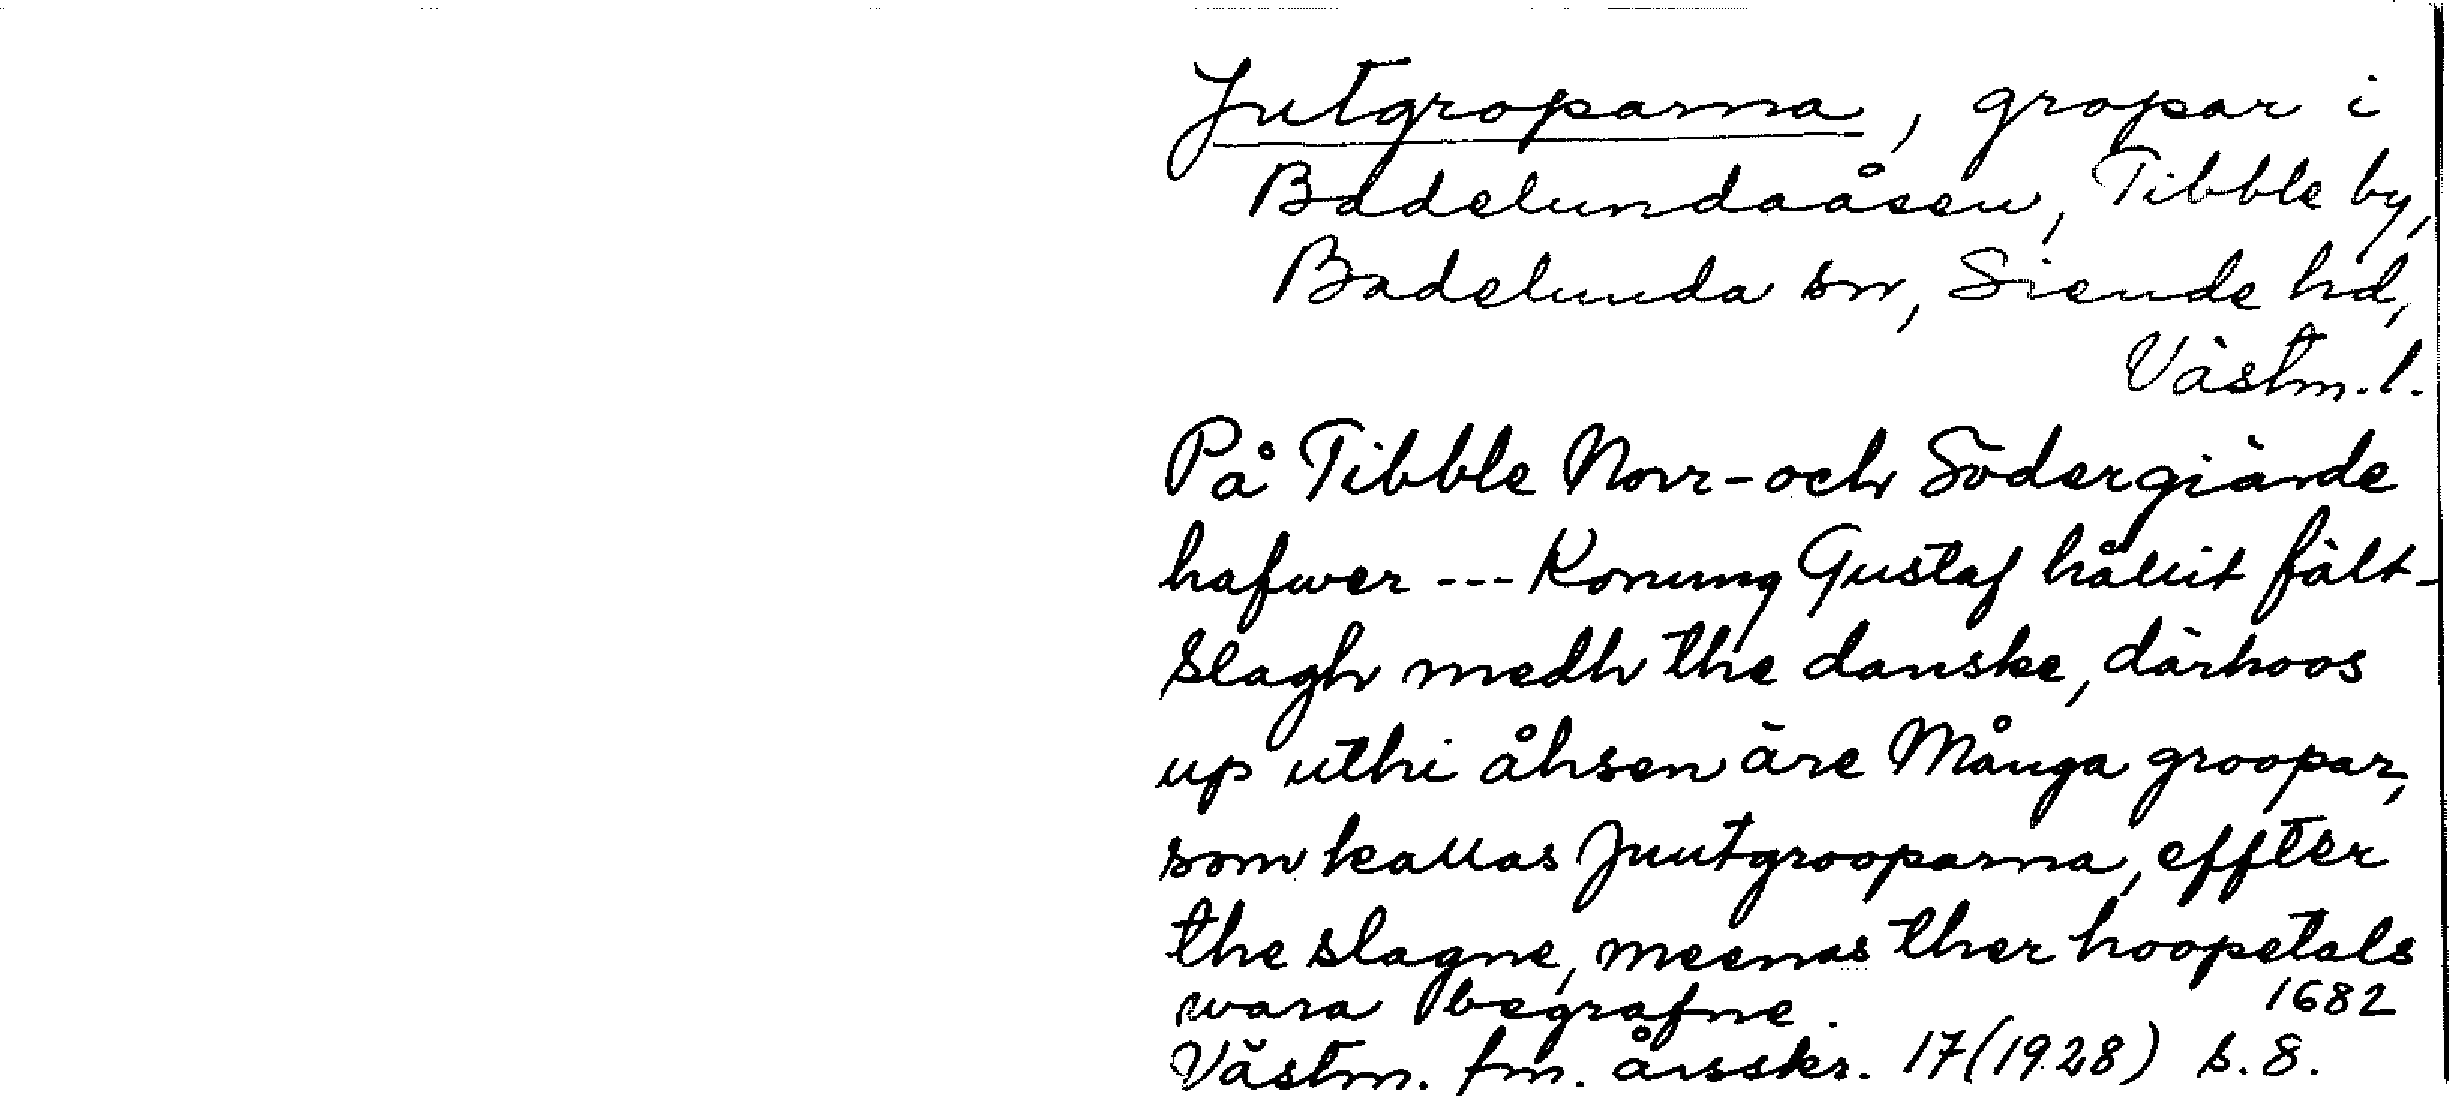 Jutgroparna, gropar i
Badelundaåsen, Tibble by,
Badelunda sn, Siende hd,
Västm. l.
På Tibble Norr- och Södergiärde
hafwer --- Konung Gustaf hållit fält-
slagh medh the danske, därhoos
up uthi åhsen äre Många groopar,
som kallas Juutgrooparna, effter
the slagne, meenas ther hoopetals
wara begrafne. 1682
Västm. fm. årsskr. 17 (1928) s. 8.